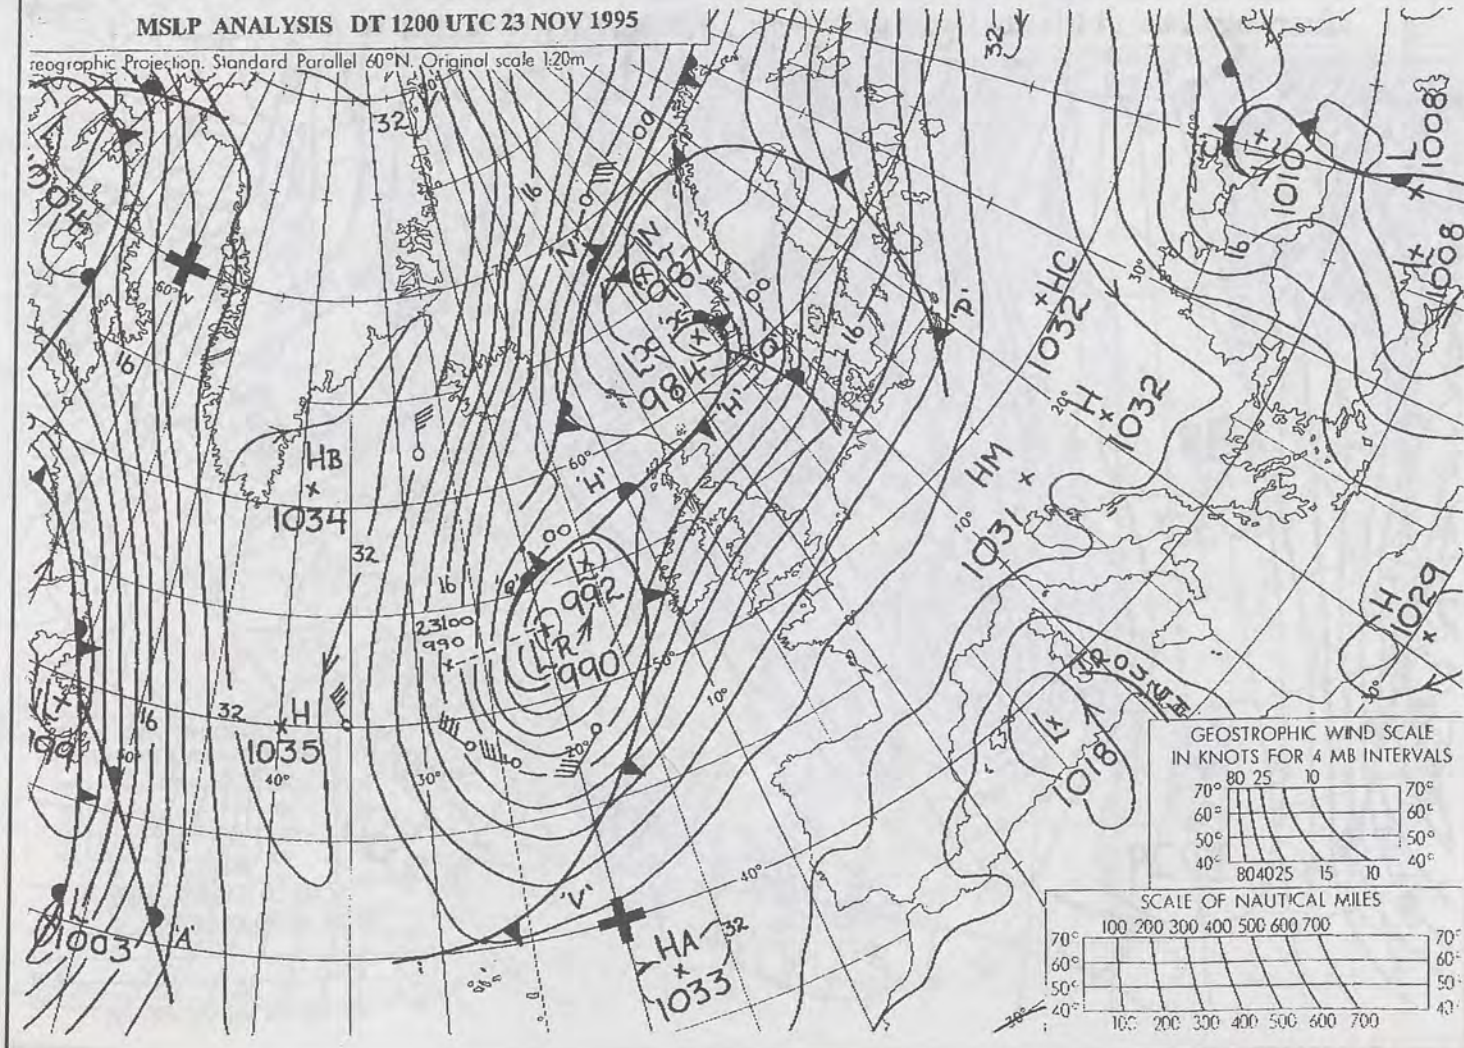 MSLP ANALYSIS DT 1200 UTC 23 NOV 1995
reographic Projection. Standard Parallel 60°N. Original scale 1:20m
32
32
1008
L
1008
L
1008
1010
L
16
00
16
N
'N'
987
00
984
'Q'
'H'
16
'P'
HC
1032
H
1032
20°
30°
HM
1031
10°
H
1029
60°N
16
HB
1034
32
16
60°
'H'
00
L
992
23100
990
LR
990
50°
10°
20°
30°
32
H
1035
40°
16
50°
1003
'A'
'V'
40°
32
HA
1033
L
1018
0°
GEOSTROPHIC WIND SCALE
IN KNOTS FOR 4 MB INTERVALS
80 25 10
70° 70°
60° 60°
50° 50°
40° 40°
80 40 25 15 10
SCALE OF NAUTICAL MILES
100 200 300 400 500 600 700
70° 70°
60° 60°
50° 50°
40° 40°
100 200 300 400 500 600 700
30°